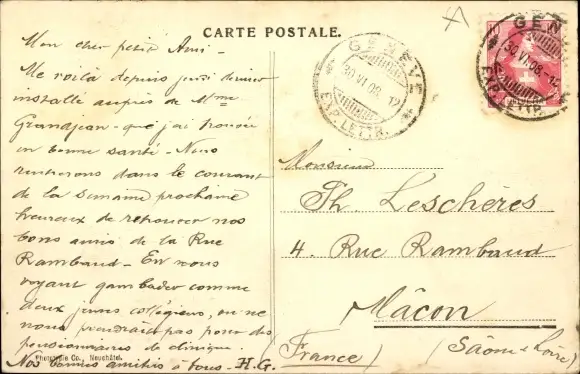 CARTE POSTALE.
Mon cher petit Ami -
Me voilà depuis jeudi dernier
installé auprès de Mme
Grandjean - que j'ai trouvée
en bonne santé - Nous
rentrerons dans le courant
de la semaine prochaine
heureux de retrouver nos
bons amis de la Rue
Rambaud - En nous
voyant gambader comme
deux jeunes collégiens, on ne
nous prendrait pas pour des
pensionnaires de clinique.
Nos bonnes amitiés à tous - H.G.
Phototypie Co., Neuchâtel
GENÈVE
30 VI 08. 12
EXP. LETTR.
GEN
30 VI 08. 12
EXP. LETTR.
Monsieur
Th. Leschères
4. Rue Rambaud
Mâcon
(Saône & Loire)
France